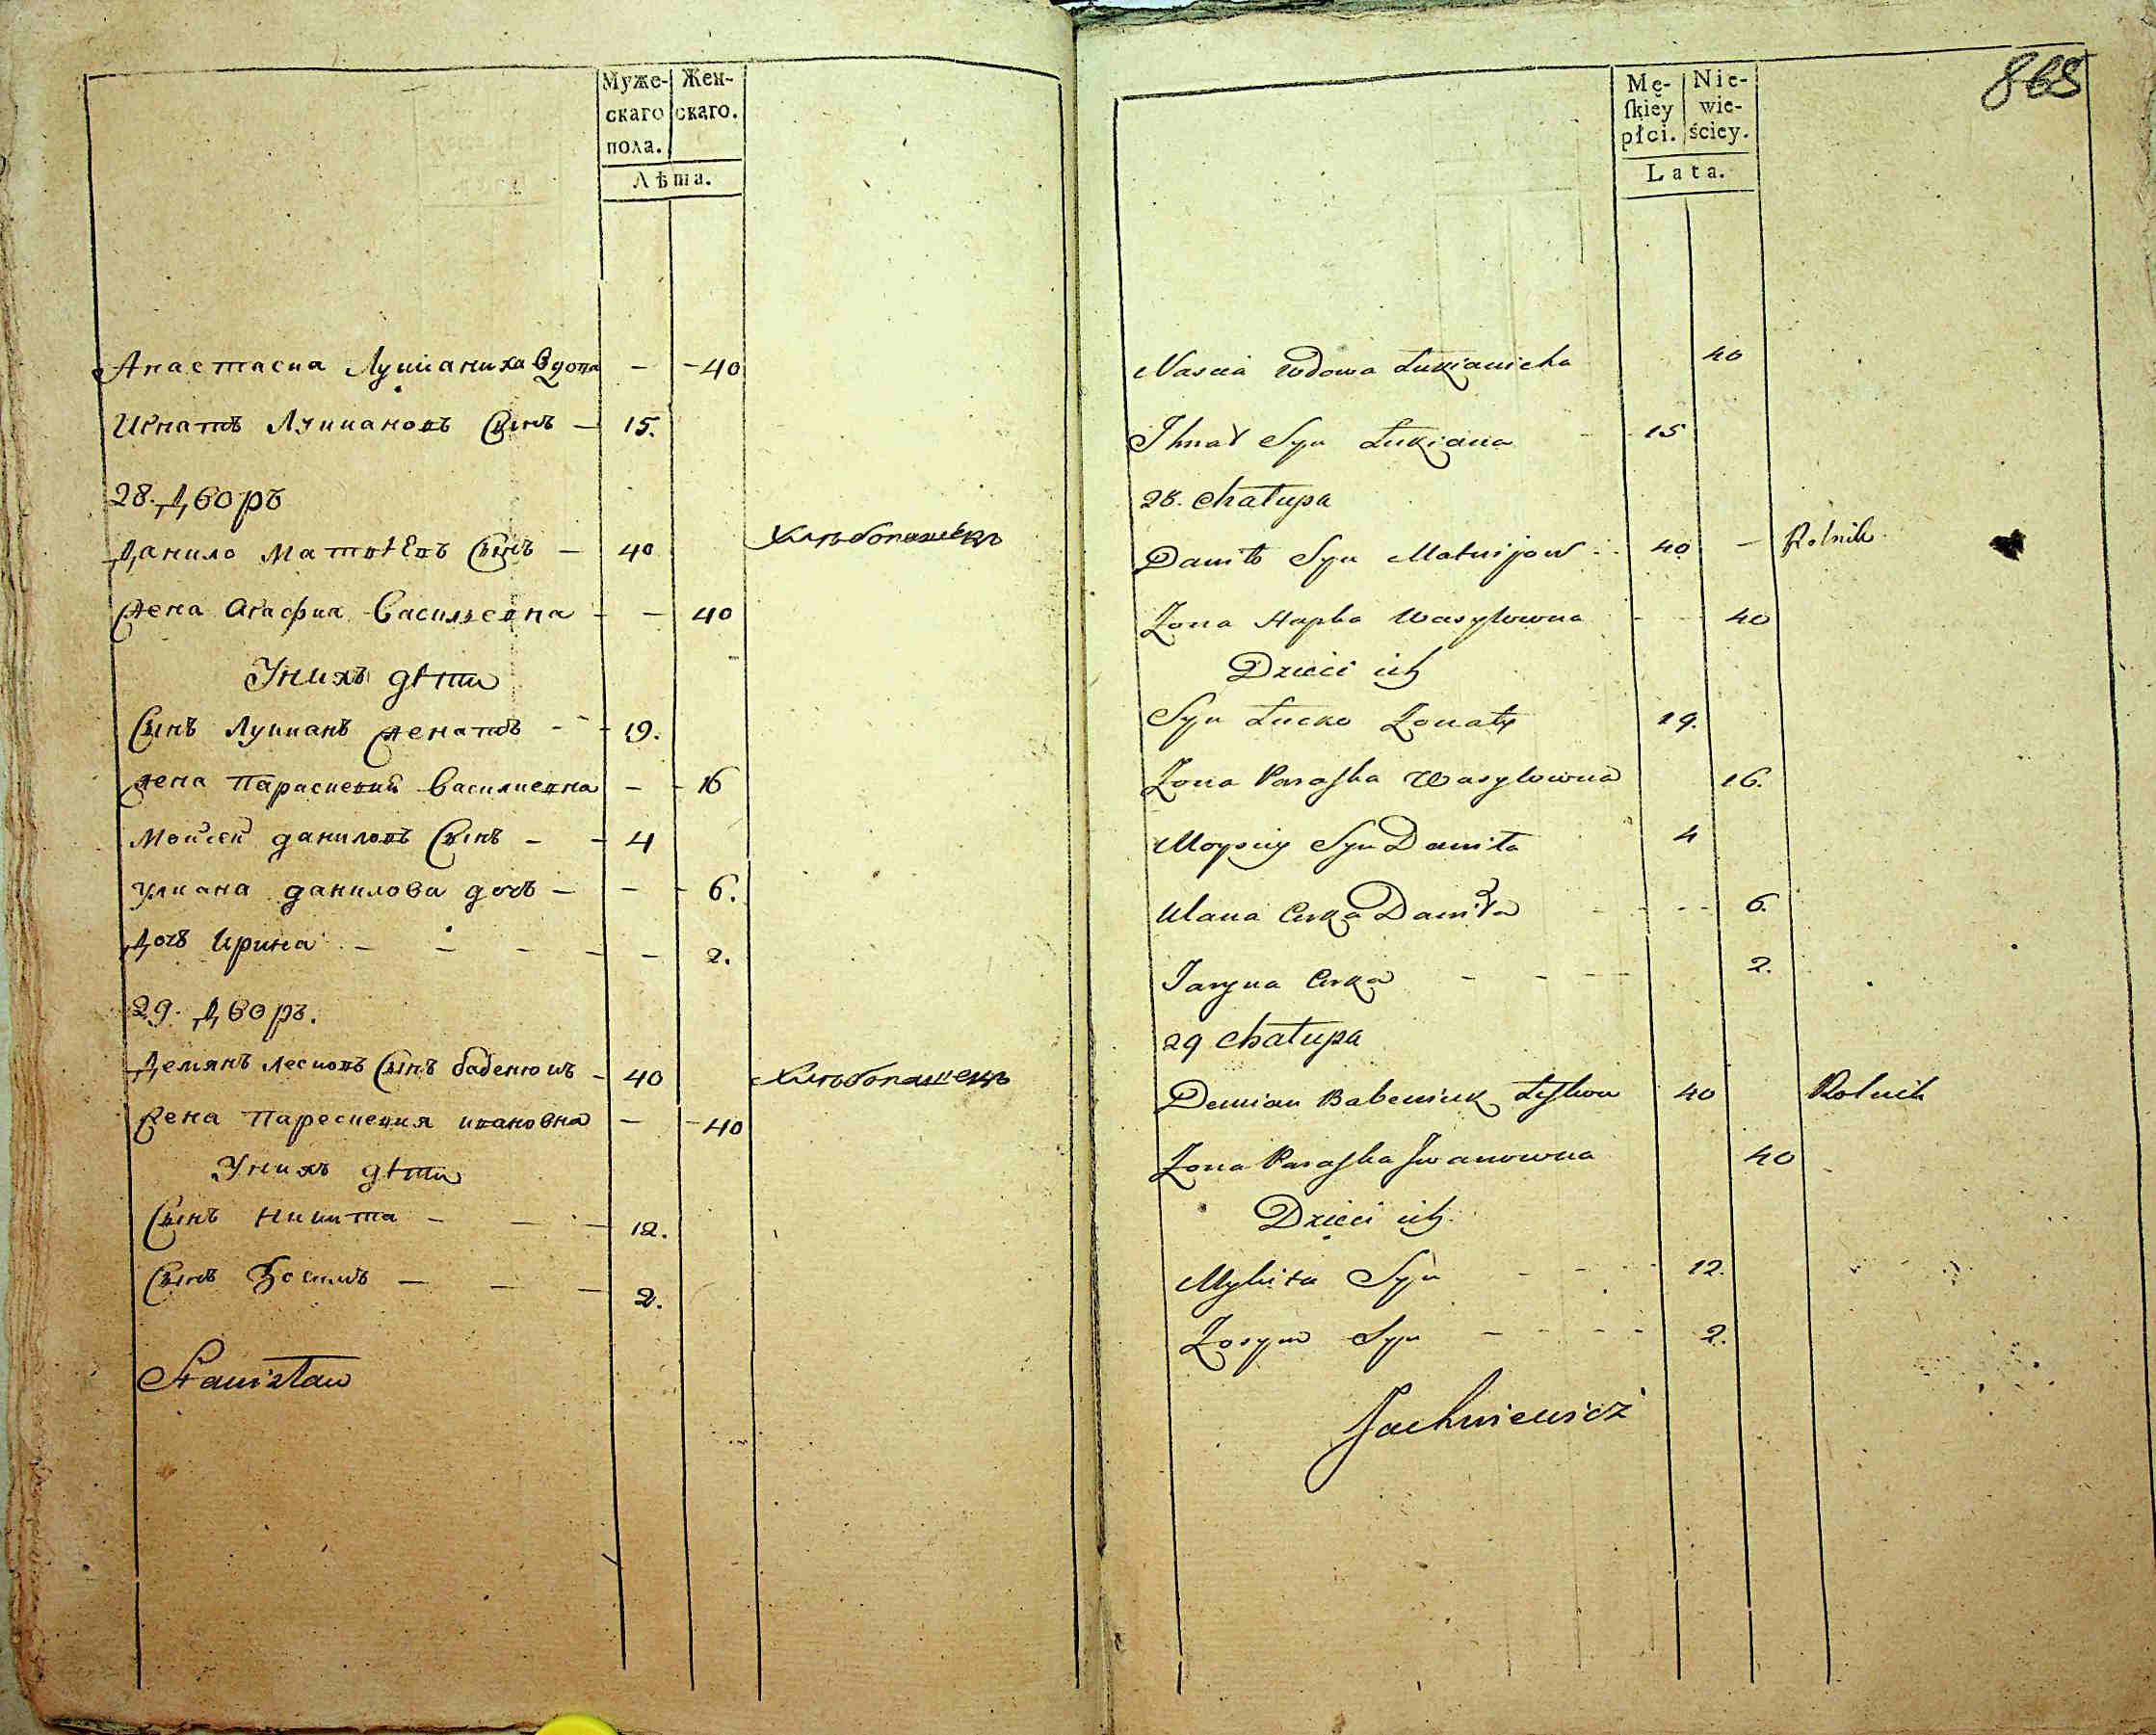 Муже- Жен-
скаго скаго.
пола.
Лѣта.
Анастасиа Лукianиха Вдова — 40
Игнатъ Лукиановъ Сынъ — 15.
28. Дворъ
Данило Матвѣевъ Сынъ — 40 Хлѣбопашецъ
Жена Агафиа Васильевна — 40
У нихъ дѣти
Сынъ Лукианъ Женатъ — 19.
Жена Параскевия Василиевна — 16
Моисей даниловъ Сынъ — 4
Улиана данилова дочь — 6.
Дочь Ирина — 2.
29. Дворъ.
Демянъ Лесковъ Сынъ бабенюкъ — 40 Хлѣбопашецъ
Жена Парескевия ивановна — 40
У нихъ дѣти
Сынъ Никита — 12.
Сынъ Зосимъ — 2.
Stanisław
868
Mę- Nie-
ſkiey wie-
płci. ściey.
Lata.
Nascia Wdowa Łukianicha 40
Ihnat Syn Łukiana 15
28. Chałupa
Daniło Syn Matwijow 40 — Rolnik
Zona Hapka Wasylowna 40
Dzieci ich
Syn Łucko Zonaty 19.
Zona Paraſka Wasylowna 16.
Moysiy Syn Daniła 4
Ulana Curka Daniła 6.
Jaryna Curka 2.
29 Chałupa
Demian Babeniuk Łeſkow 40 Rolnik
Zona Paraſka Jwanowna 40
Dzieci ich.
Mykita Syn 12.
Zosym Syn 2.
Jachniewicz